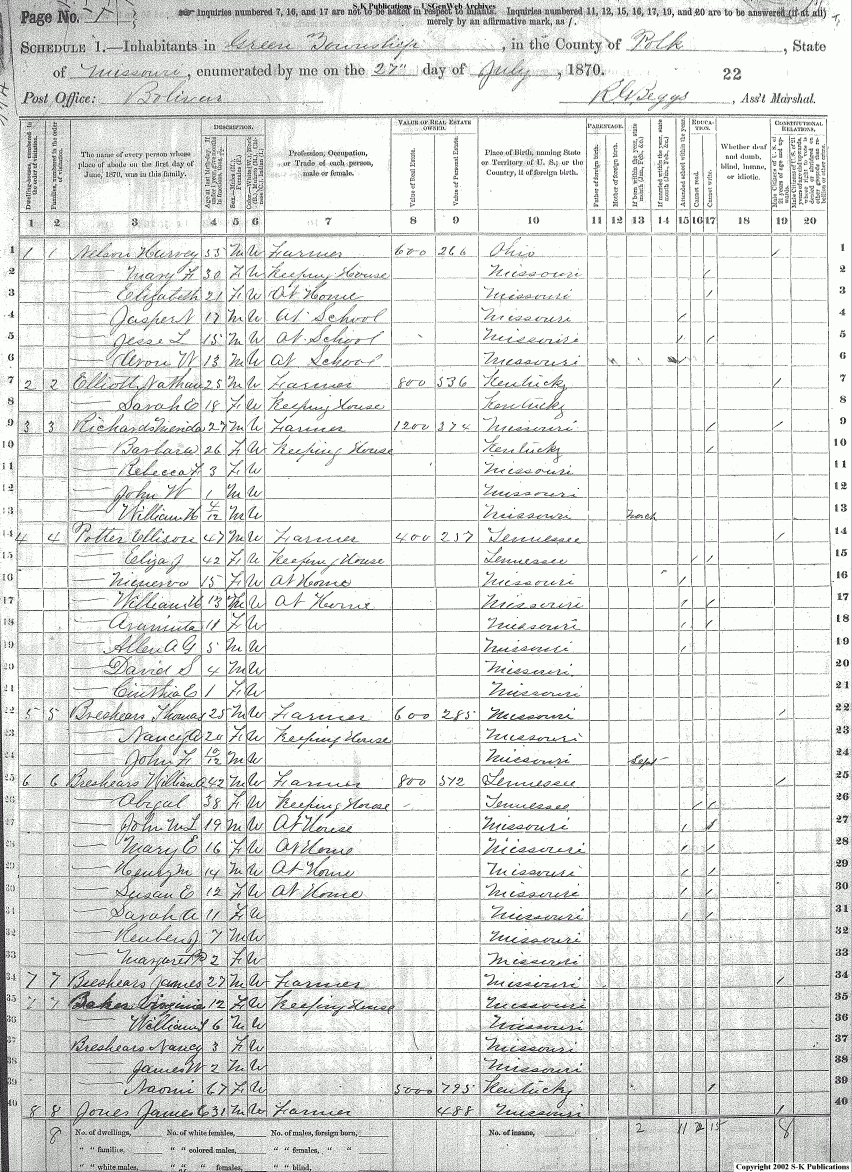 S-K Publications -- USGenWeb Archives
Page No.
Inquiries numbered 7, 16, and 17 are not to be asked in respect to infants. Inquiries numbered 11, 12, 15, 16, 17, 19, and 20 are to be answered (if at all)
merely by an affirmative mark, as /.
SCHEDULE 1.—Inhabitants in Green Township, in the County of Polk, State
of Missouri, enumerated by me on the 27" day of July, 1870. 22
Post Office: Bolivar R G Beggs, Ass't Marshal.
DESCRIPTION. VALUE OF REAL ESTATE OWNED. PARENTAGE. EDUCATION. CONSTITUTIONAL RELATIONS.
The name of every person whose place of abode on the first day of June, 1870, was in this family.
Profession, Occupation, or Trade of each person, male or female.
Value of Real Estate. Value of Personal Estate.
Place of Birth, naming State or Territory of U. S.; or the Country, if of foreign birth.
Father of foreign birth. Mother of foreign birth.
Attended school within the year. Cannot read. Cannot write.
Whether deaf and dumb, blind, insane, or idiotic.
1 2 3 4 5 6 7 8 9 10 11 12 13 14 15 16 17 18 19 20
1 1 1 Nelson Harvey 53 M W Farmer 600 266 Ohio / 1
2 — Mary F 30 F W Keeping House Missouri / 2
3 — Elizabeth 21 F W At Home Missouri / 3
4 — Jasper N 17 M W At School Missouri / 4
5 — Jesse L 15 M W At School Missouri / / 5
6 — W 13 M W At School Missouri / 6
7 2 2 Elliott Nathan 25 M W Farmer 800 536 Kentucky / 7
8 — Sarah E 18 F W Keeping House Kentucky 8
9 3 3 Richards 27 M W Farmer 1200 374 Missouri / / 9
10 — Barbara 26 F W Keeping House Kentucky / 10
11 — Rebecca F 3 F W Missouri 11
12 — John W 1 M W Missouri 12
13 — William H 4/12 M W Missouri March 13
14 4 4 Potter Ellison 47 M W Farmer 400 257 Tennessee / 14
15 — Eliza J 42 F W Keeping House Tennessee / / 15
16 — 15 F W At Home Missouri / 16
17 — William H 13 M W At Home Missouri / / 17
18 — Araminta 11 F W Missouri / / 18
19 — Allen A G 5 M W Missouri / 19
20 — David S 4 M W Missouri 20
21 — Cinthia C 1 F W Missouri 21
22 5 5 Breshears Thomas 25 M W Farmer 600 285 Missouri / 22
23 — Nancy A 20 F W Keeping House Missouri 23
24 — John F 10/12 M W Missouri Sept 24
25 6 6 Breshears William A 42 M W Farmer 800 512 Tennessee / 25
26 — Abigal 38 F W Keeping House Tennessee / / 26
27 — John M L 19 M W At House Missouri / / 27
28 — Mary E 16 F W At Home Missouri / / 28
29 — Henry M 14 M W At Home Missouri / / 29
30 — Susan E 12 F W At Home Missouri / / 30
31 — Sarah A 11 F W Missouri / / 31
32 — Reuben J 7 M W Missouri 32
33 — Margaret 2 F W Missouri 33
34 7 7 Breshears James 27 M W Farmer Missouri / 34
35 7 7 Baker Virginia 12 F W Keeping House Missouri 35
36 — William 6 M W Missouri 36
37 Breshears Nancy 3 F W Missouri 37
38 — James W 2 M W Missouri 38
39 — Naomi 67 F W 5000 795 Kentucky / 39
40 8 8 Jones James C 31 M W Farmer 488 Missouri / 40
8 No. of dwellings, No. of white females, No. of males, foreign born, No. of insane, 2 11 15 8
" " families. " " colored males, " " females, " "
" " white males, " " females, " " blind,
Copyright 2002 S-K Publications